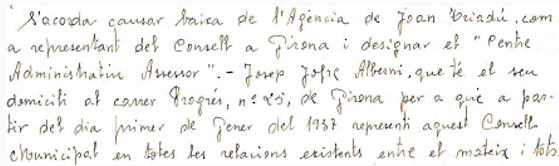 S'acorda causar baixa de l'Agència de Joan Triadú, com
a representant del Consell a Girona i designar el "Centre
Administratiu Assessor".- Josep Jofre Alberni, que té el seu
domicili al carrer Progrés, nº 25, de Girona per a què a par-
tir del dia primer de Gener del 1937 representi aquest Consell
Municipal en totes les relacions existents entre el mateix i tots